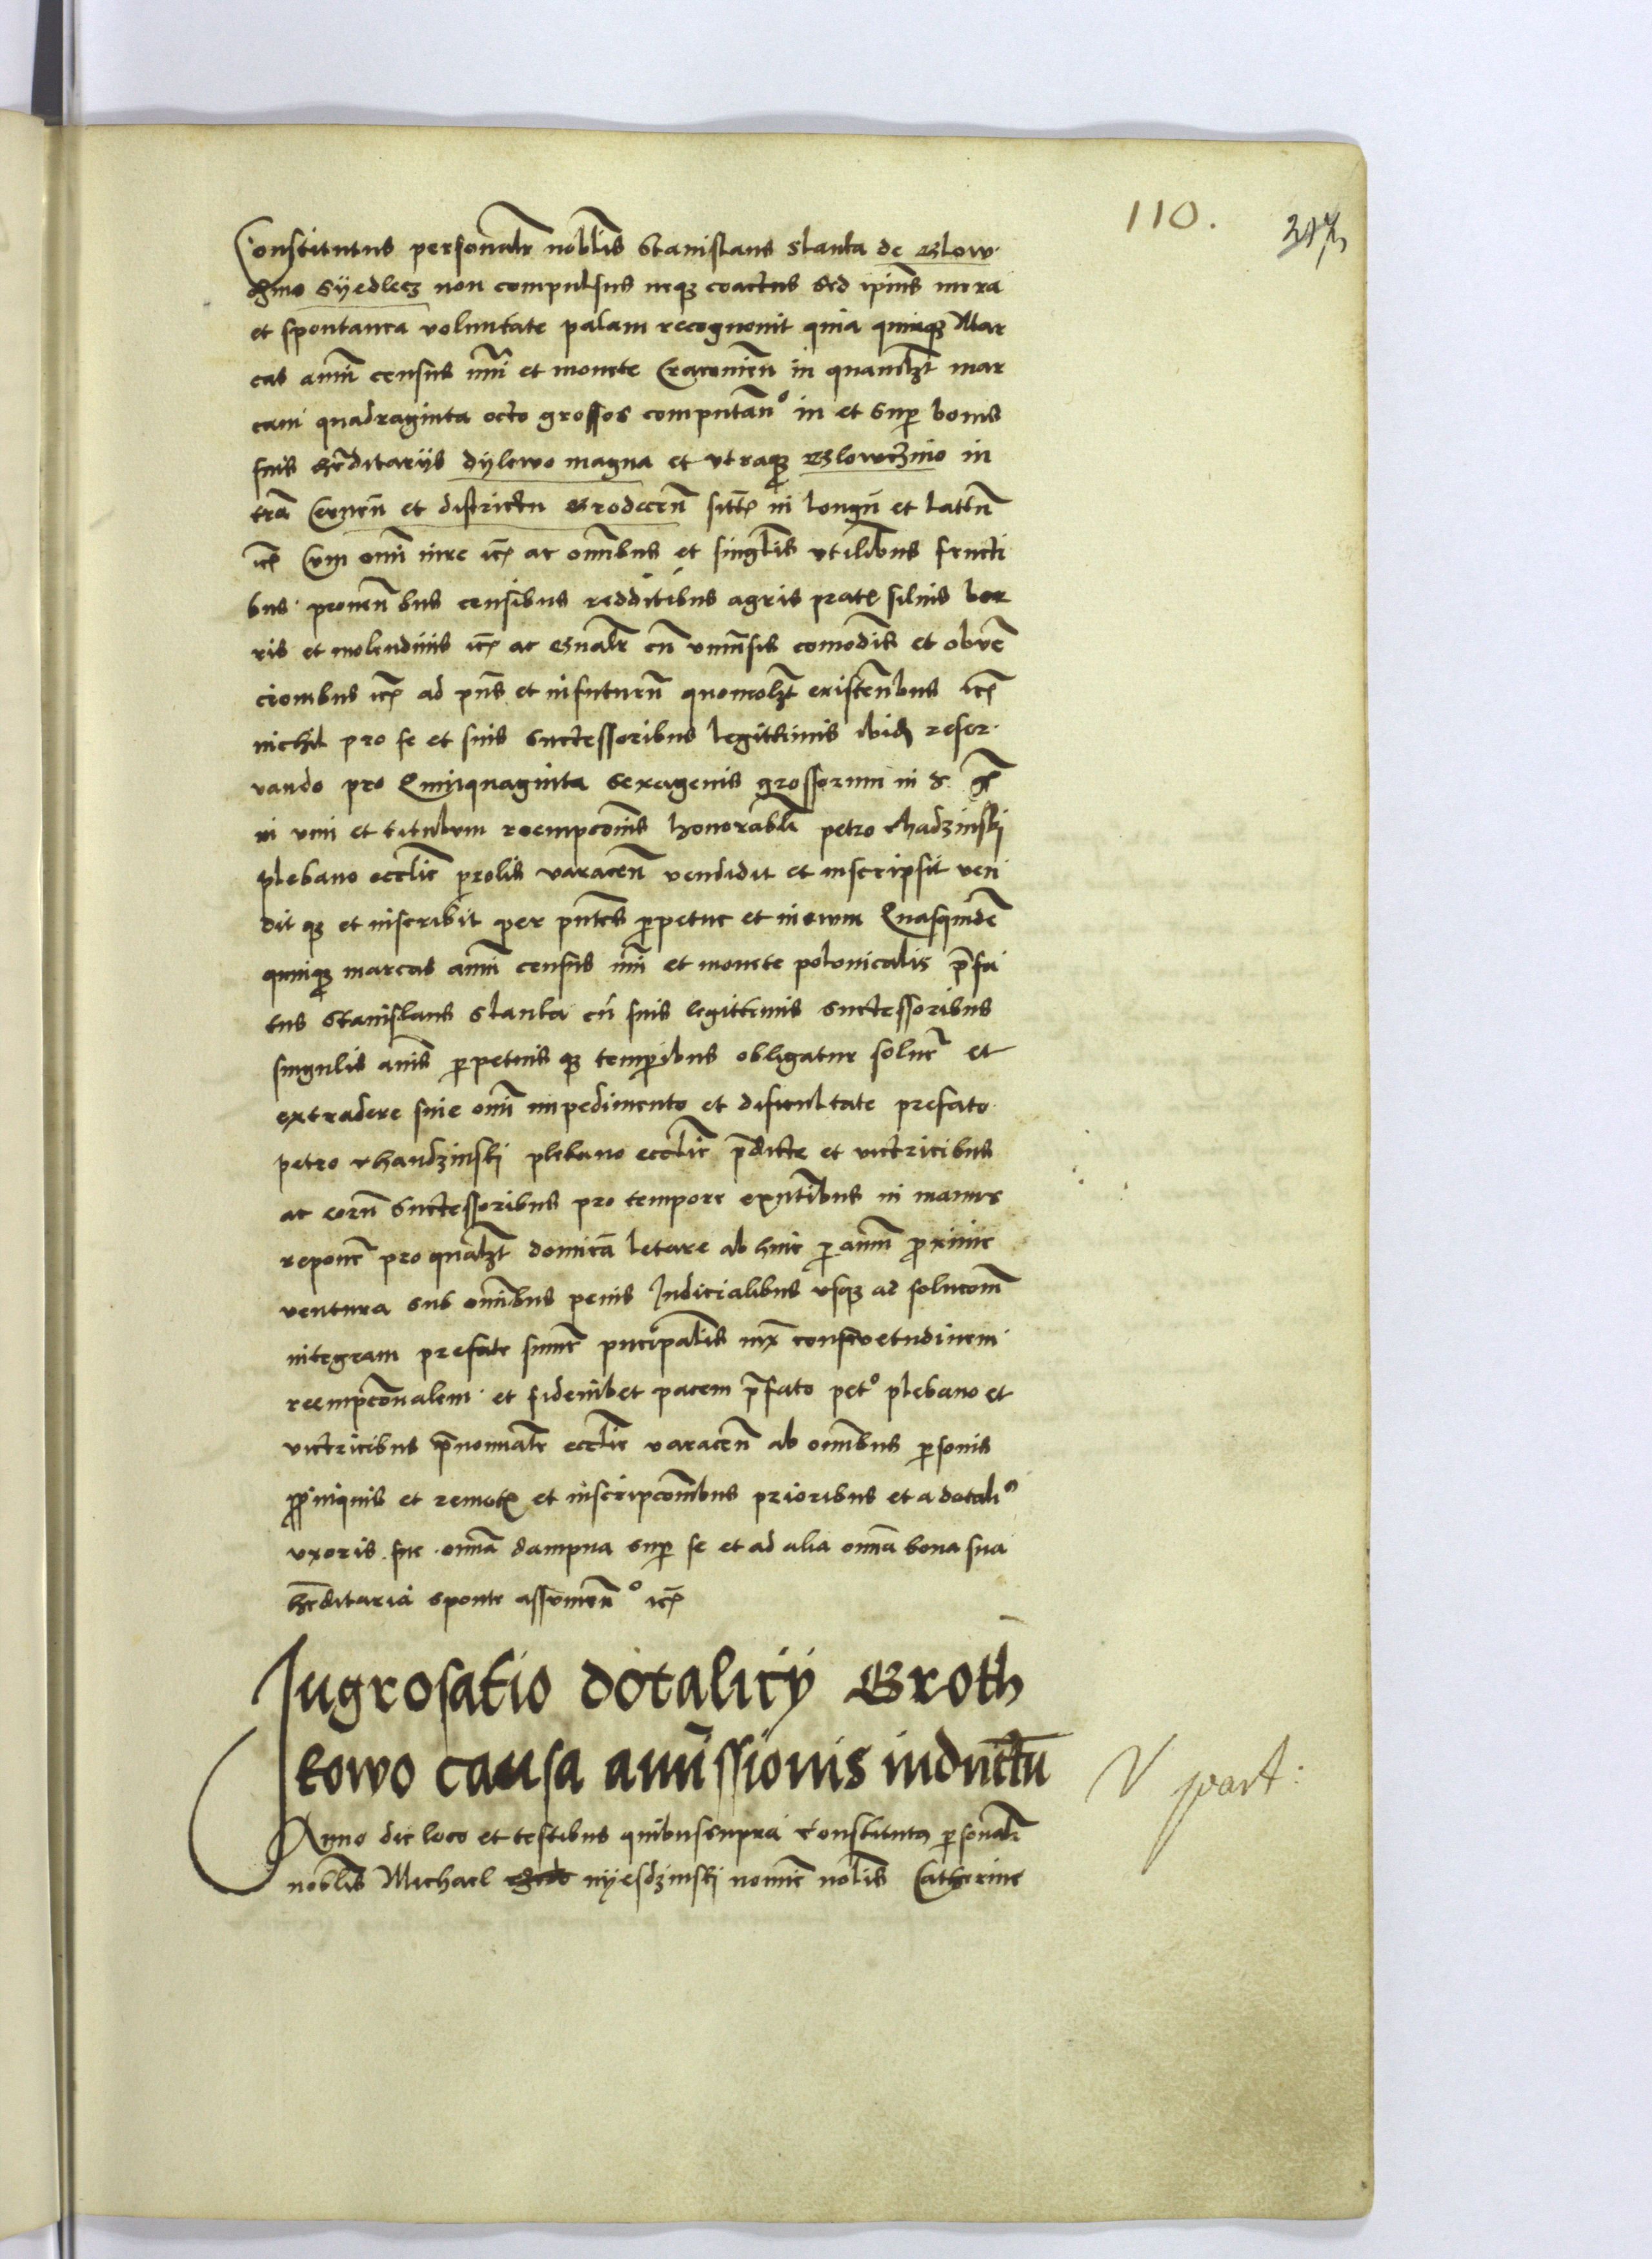 110.
Constitutus personalr noblis Stanislaus Slanka de Glow
non compulsus neqz coactus Sed ipius mera
et spontanea voluntate palam recognouit quia quinqz Mar
cas annui census nri et monete Cracouien in quamlzt mar
cam quadraginta octo grossos computando in et sup bonis
suis hrditarys dylewo magna et vtraqz Glowczino in
tra Cernen et districtu Grodecen sitis in longu et latu
etc Cum omi iure etc ac omibus et singlis vtilibus fructi
bus prouenbus censibus redditibus agris pratis siluis bor
ris et molendinis etc ac gnalr cu vniuersis comodis et obuen
cionibus etc ad pns et infuturu quomolzt existenbus etc
nichil pro se et suis Successoribus legittimis ibid reser
vando pro Quinquaginta sexagenis grossorum in
in vim et titulum reempconis honorabli petro
plebano ecclie prolis varacen vendidit et inscripsit ven
dit qz et inscribit per pntes perpetue et in ewm Quasquide
quinqz marcas annui census nri et monete polonicalis prefa
tus Stanislaus Slanka cu suis legittimis Successoribus
singulis annis perpetuis qz temporibus obligatur soluer et
extradere sine omi impedimento et dificultate prefato
petro plebano ecclie predicte et victricibus
ac eoru Successoribus pro tempore exntibus in manus
reponer pro qualzt domica letare ab hinc per annu proxime
ventura sub omibus penis Judicialibus vsqz ad solucom
integram prefate summe principalis iux consvetudinem
reempconalem et fideiubet pacem prefato peto plebano et
victricibus prenominate ecclie varacen ab omibus personis
propinquis et remotis et inscripconibus prioribus et a dotalio
vxoris sue omia dampna sup se et ad alia omia bona sua
hereditaria sponte assumendo etc
Ingrosatio dotalicy Groth
kowo causa amissionis inductu
V part:
Anno die loco et testibus quibus supra Constitutus personalr
noblis Michael nyesdzinski nomine noblis Catherine